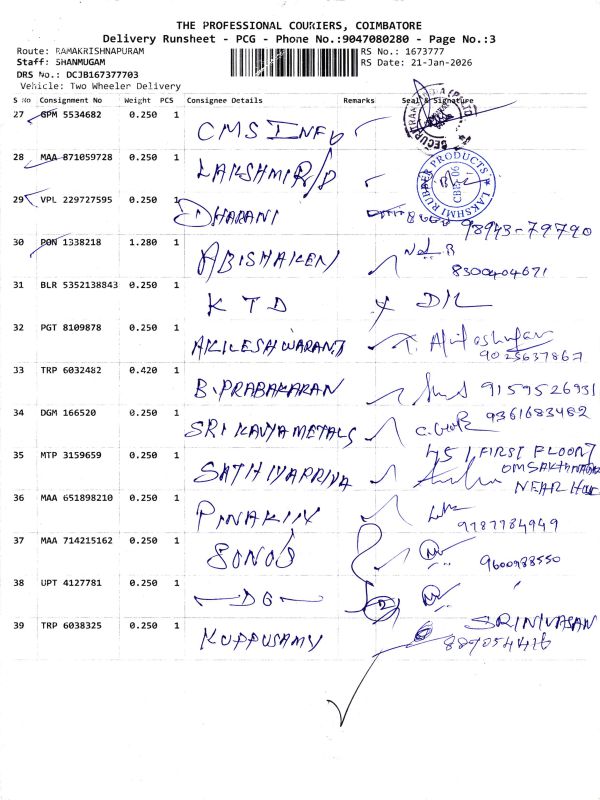 THE PROFESSIONAL COURIERS, COIMBATORE
Delivery Runsheet - PCG - Phone No.:9047080280 - Page No.:3
Route: RAMAKRISHNAPURAM RS No.: 1673777
Staff: SHANMUGAM RS Date: 21-Jan-2026
DRS No.: DCJB167377703
Vehicle: Two Wheeler Delivery
S No Consignment No Weight PCS Consignee Details Remarks Seal & Signature
27 GPM 5534682 0.250 1 CMS INFO
28 MAA 871059728 0.250 1 LAKSHMI R/P
RUBBER PRODUCTS
LAKSHMI
29 VPL 229727595 0.250 1 DHARANI 98943-79790
30 PON 1338218 1.280 1 8300404671
31 BLR 5352138843 0.250 1 KTD D/L
32 PGT 8109878 0.250 1 AKILESHWARAN T.
9025637867
33 TRP 6032482 0.420 1 B.PRABAKARAN 9159526931
34 DGM 166520 0.250 1 SRI KAVYA METALS 9361683482
35 MTP 3159659 0.250 1 SATHIYAPRIYA 45 1 FIRST FLOOR
NEAR
36 MAA 651898210 0.250 1
9787784949
37 MAA 714215162 0.250 1 9600988550
38 UPT 4127781 0.250 1 DG
39 TRP 6038325 0.250 1 KUPPUSAMY SRINIVASAN